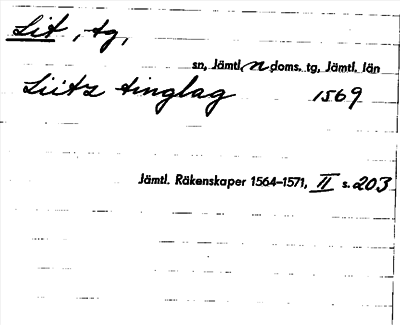 Lit, tg,
sn, Jämtl. n doms. tg, Jämtl. län
Liitz tinglag 1569
Jämtl. Räkenskaper 1564–1571, II s. 203